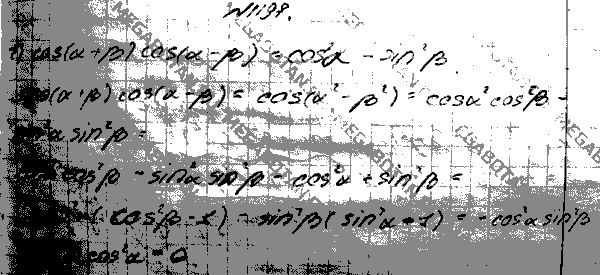 N1198.
1) cos(α+β) cos(α-β) = cos²α - sin²β
cos(α+β) cos(α-β) = cos(α²-β²) = cosα² cos²β -
sin²α sin²β =
cos²β - sin²α sin²β - cos²α + sin²β =
(cos²β-1) - sin²β( sin²α -1) = - cos²α sin²β
cos²α = 0.